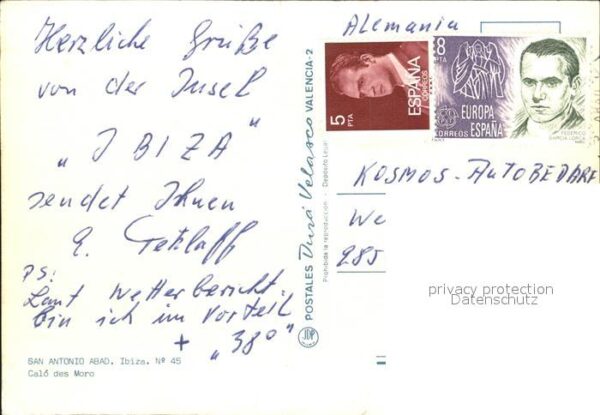 Herzliche Grüße
von der Insel
„IBIZA"
sendet Ihnen
E. Tetzlaff
PS:
Laut Wetterbericht
bin ich im Vorteil
+ „38°"
SAN ANTONIO ABAD. Ibiza. Nº 45
Caló des Moro
POSTALES Durá Velasco VALENCIA-2
Prohibida la reproducción - Depósito Legal
Alemania
5 PTA
ESPAÑA
CORREOS
8 PTA
EUROPA
CORREOS ESPAÑA
FEDERICO
GARCIA LORCA
KOSMOS-AUTOBEDARF
We
285
privacy protection
Datenschutz